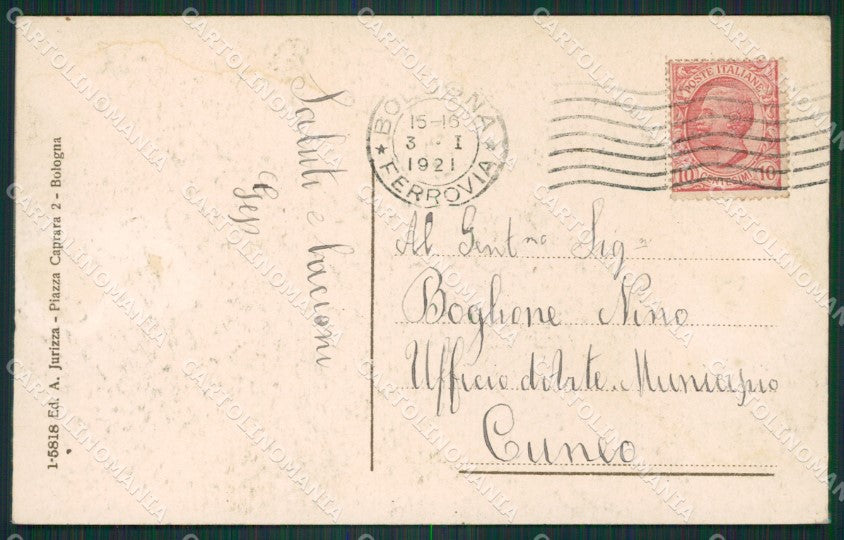 1-5818 Ed. A. Jurizza - Piazza Caprara 2 - Bologna
Saluti e bacioni
Gep
BOLOGNA
15-16
3 I
1921
FERROVIA
POSTE ITALIANE
10 CENTESIMI 10
Al Gentmo Sigr
Boglione Nino
Ufficio d'Arte Municipio
Cuneo
CARTOLINOMANIA